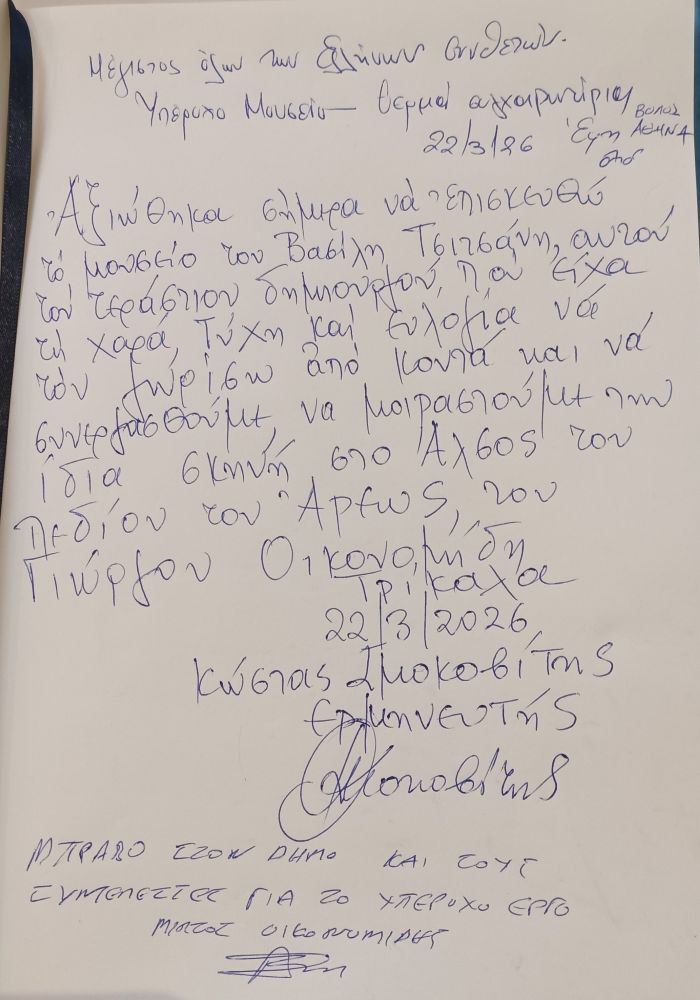 Μέγιστος όλων των Ελλήνων συνθετών.
Υπέροχο Μουσείο — θερμά συγχαρητήρια
22/3/26 Έφη ΒΟΛΟΣ
ΑΘΗΝΑ
Ἀξιώθηκα σήμερα νά ἐπισκευθώ
τό μουσείο του Βασίλη Τσιτσάνη, αυτού
τού τεράστιου δημιουργού, πού εἶχα
τή χαρά, τύχη καί ευλογία νά
τόν γωρίσω ἀπό κοντά και νά
συνεργασθούμε, να μοιραστούμε την
ἴδια σκηνή στο Ἄλσος του
Πεδίου του Ἄρεως, του
Γιώργου Οικονομίδη
Τρίκαλα
22/3/2026
Κώστας Σμοκοβίτης
Ερμηνευτής
Σμοκοβίτης
ΜΠΡΑΒΟ ΣΤΟΝ ΔΗΜΟ ΚΑΙ ΤΟΥΣ
ΣΥΝΤΕΛΕΣΤΕΣ ΓΙΑ ΤΟ ΥΠΕΡΟΧΟ ΕΡΓΟ
ΟΙΚΟΝΟΜΙΔΗΣ